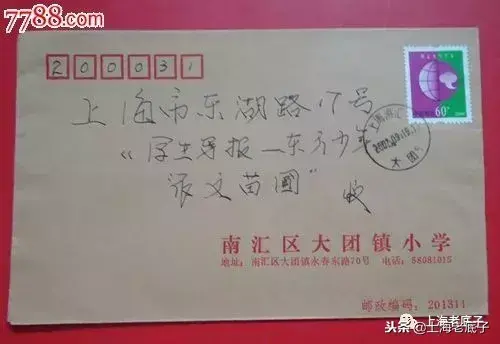 7788.com
200031
上海市东湖路17号
《学生导报—东方少年
张文苗圃" 收
60分
上海南汇
大团
南汇区大团镇小学
地址：南汇区大团镇永春东路70号 电话：58081015
邮政编码：201311
上海老底子
头条@上海老底子